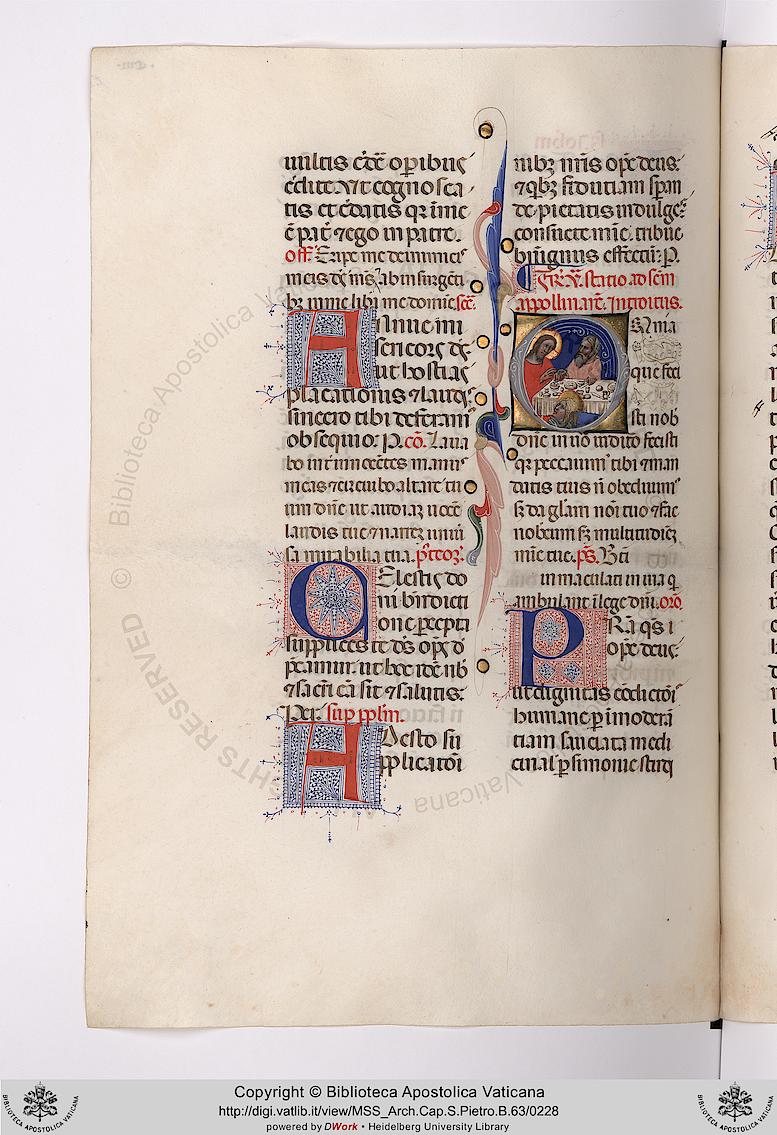 uultis cr̄e oꝑibus
c̄dite Vt cognosca
tis et c̄datis qꝛ in me
ē pat̄ ⁊ ego in patre.
off̄. Eripe me de inimicis
meis ds̄ ms̄ ⁊ ab insurgēti
bꝫ in me liba me domine. sec̄.
Annue mi
sericors ds̄
ut hostias
placationis ⁊ laudis
sincero tibi deferam
obsequio. P. cō. Laua
bo int̄ innocētes manus
meas ⁊ circuibo altare tu
um dn̄e ut audiaꝫ uocē
laudis tue ⁊ narrē uniu
sa mirabilia tua. p̄t cōꝫ.
Celestis do
ni bn̄dicti
one ꝑcepta
supplices te ds̄ op̄s d̄
p̄camur. ut hoc idē nb̄
⁊ sac̄i cā sit ⁊ salutis.
Per. sup pp̄lm.
Adesto su
pplicatōi
nibꝫ nr̄is op̄s deus.
⁊ qbꝫ fidutiam spān
de pietatis indulgē
consuete mīe tribue
benignus effectū. P.
Fr̄. V. statio ad sc̄m
appollinarē. Introitus.
Omnia
que feci
sti nob
dn̄e in uō iuditō fecisti
qꝛ peccauim tibi ⁊ man
datis tuis n̄ obedium
sꝫ da glam noī tuo ⁊ fac
nobcum sꝫ multitudinē
mīe tue. ps̄. Bt̄i
inmaculati in uia q
ambulant ī lege dn̄i. orō.
Pra qs̄ ī
op̄s deus.
ut dignitas cōdictōis
humane ꝑ īmoderā
tiam sauciata medi
cinal ꝑsimonie studi
© Biblioteca Apostolica Vaticana
RIGHTS RESERVED
Copyright © Biblioteca Apostolica Vaticana
http://digi.vatlib.it/view/MSS_Arch.Cap.S.Pietro.B.63/0228
powered by DWork • Heidelberg University Library
BIBLIOTECA APOSTOLICA VATICANA
BIBLIOTECA APOSTOLICA VATICANA